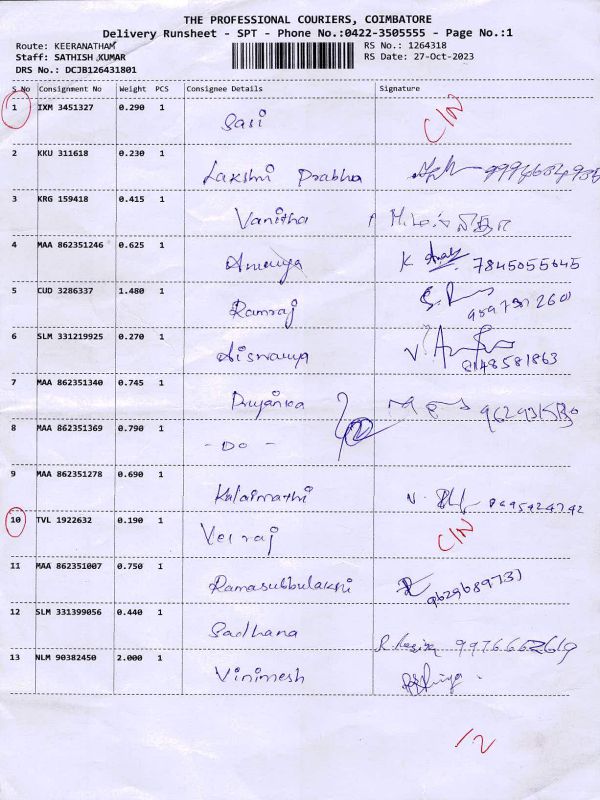 THE PROFESSIONAL COURIERS, COIMBATORE
Delivery Runsheet - SPT - Phone No.:0422-3505555 - Page No.:1
Route: KEERANATHAM RS No.: 1264318
Staff: SATHISH KUMAR RS Date: 27-Oct-2023
DRS No.: DCJB126431801
S No Consignment No Weight PCS Consignee Details Signature
1 IXM 3451327 0.290 1 Sasi C/N
2 KKU 311618 0.230 1 Lakshmi Prabha
3 KRG 159418 0.415 1 Vanitha
4 MAA 862351246 0.625 1 Ananya K. 7845055645
5 CUD 3286337 1.480 1 Ramraj
6 SLM 331219925 0.270 1 Aiswarya 8148581863
7 MAA 862351340 0.745 1 Priyanka
8 MAA 862351369 0.790 1 - Do -
9 MAA 862351278 0.690 1 Kalaimathi
10 TVL 1922632 0.190 1 Velraj C/N
11 MAA 862351007 0.750 1 Ramasubbulakshi
12 SLM 331399056 0.440 1 Sadhana 9976662619
13 NLM 90382450 2.000 1 Vinimesh
12